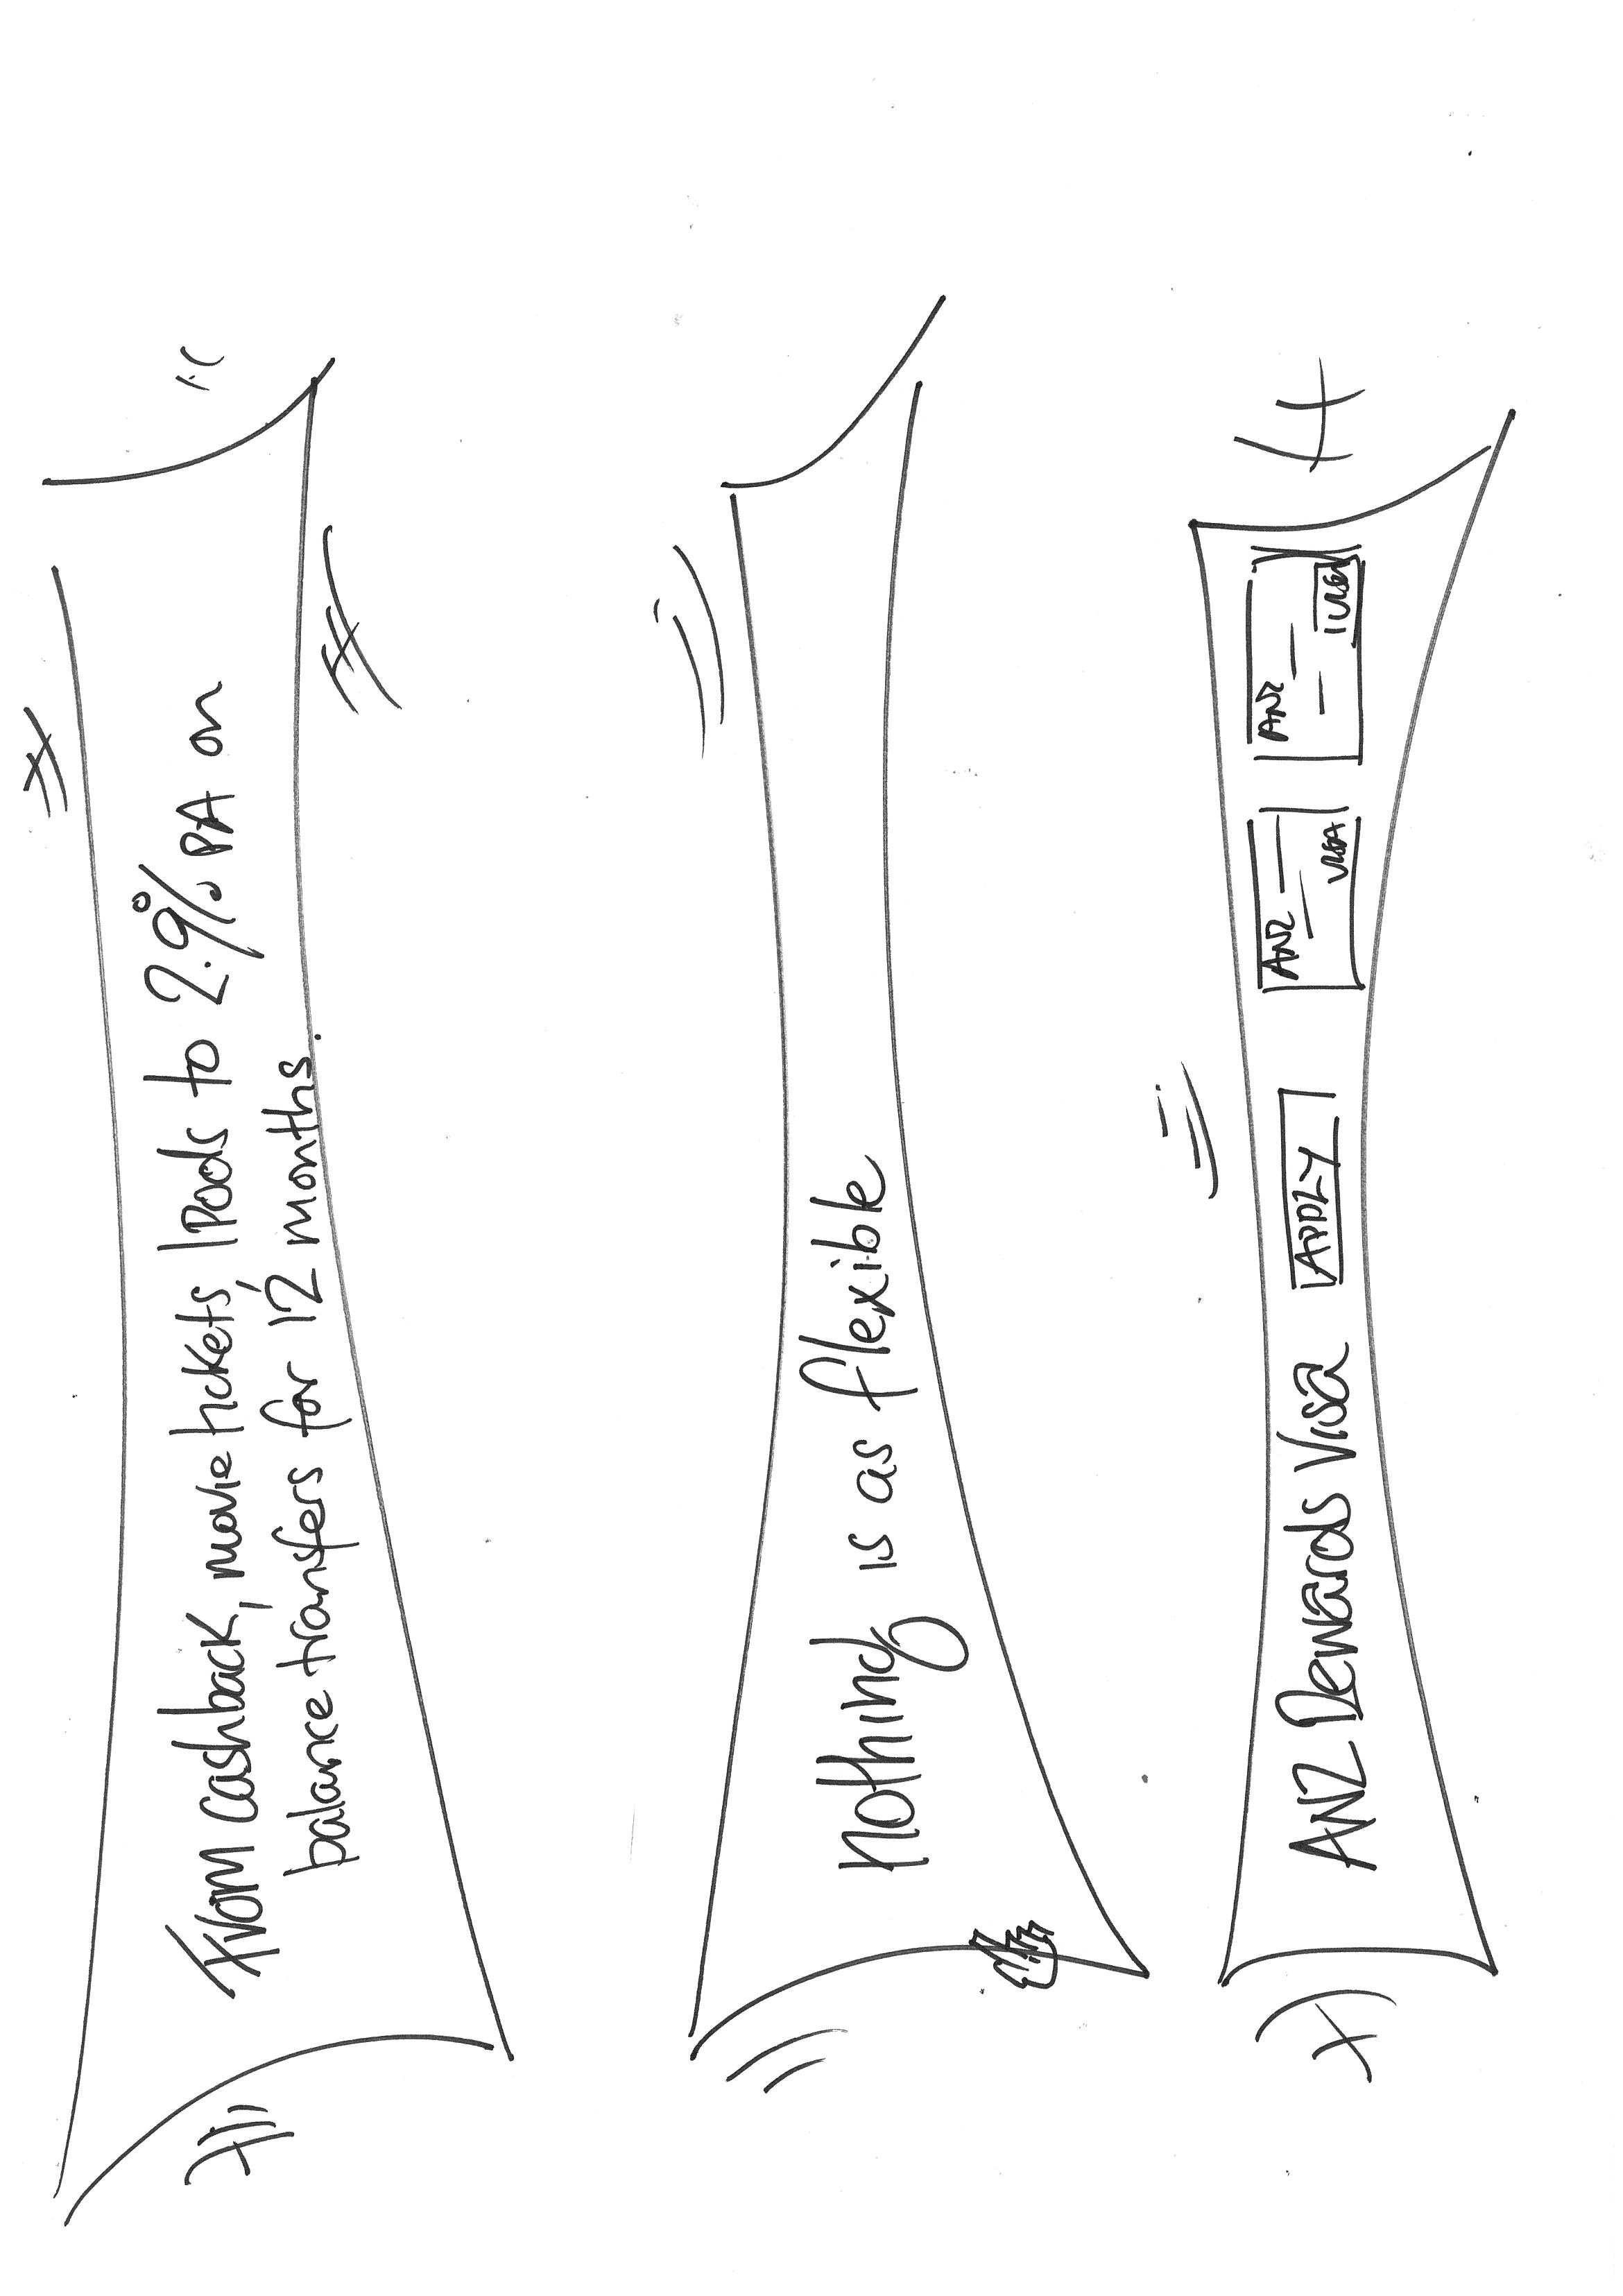 From cashback, movie tickets, IPods to 2.9% PA on
balance transfers for 12 months.
nothing is as flexible
ANZ Rewards Visa
APPLY
ANZ
VISA
ANZ
VISA